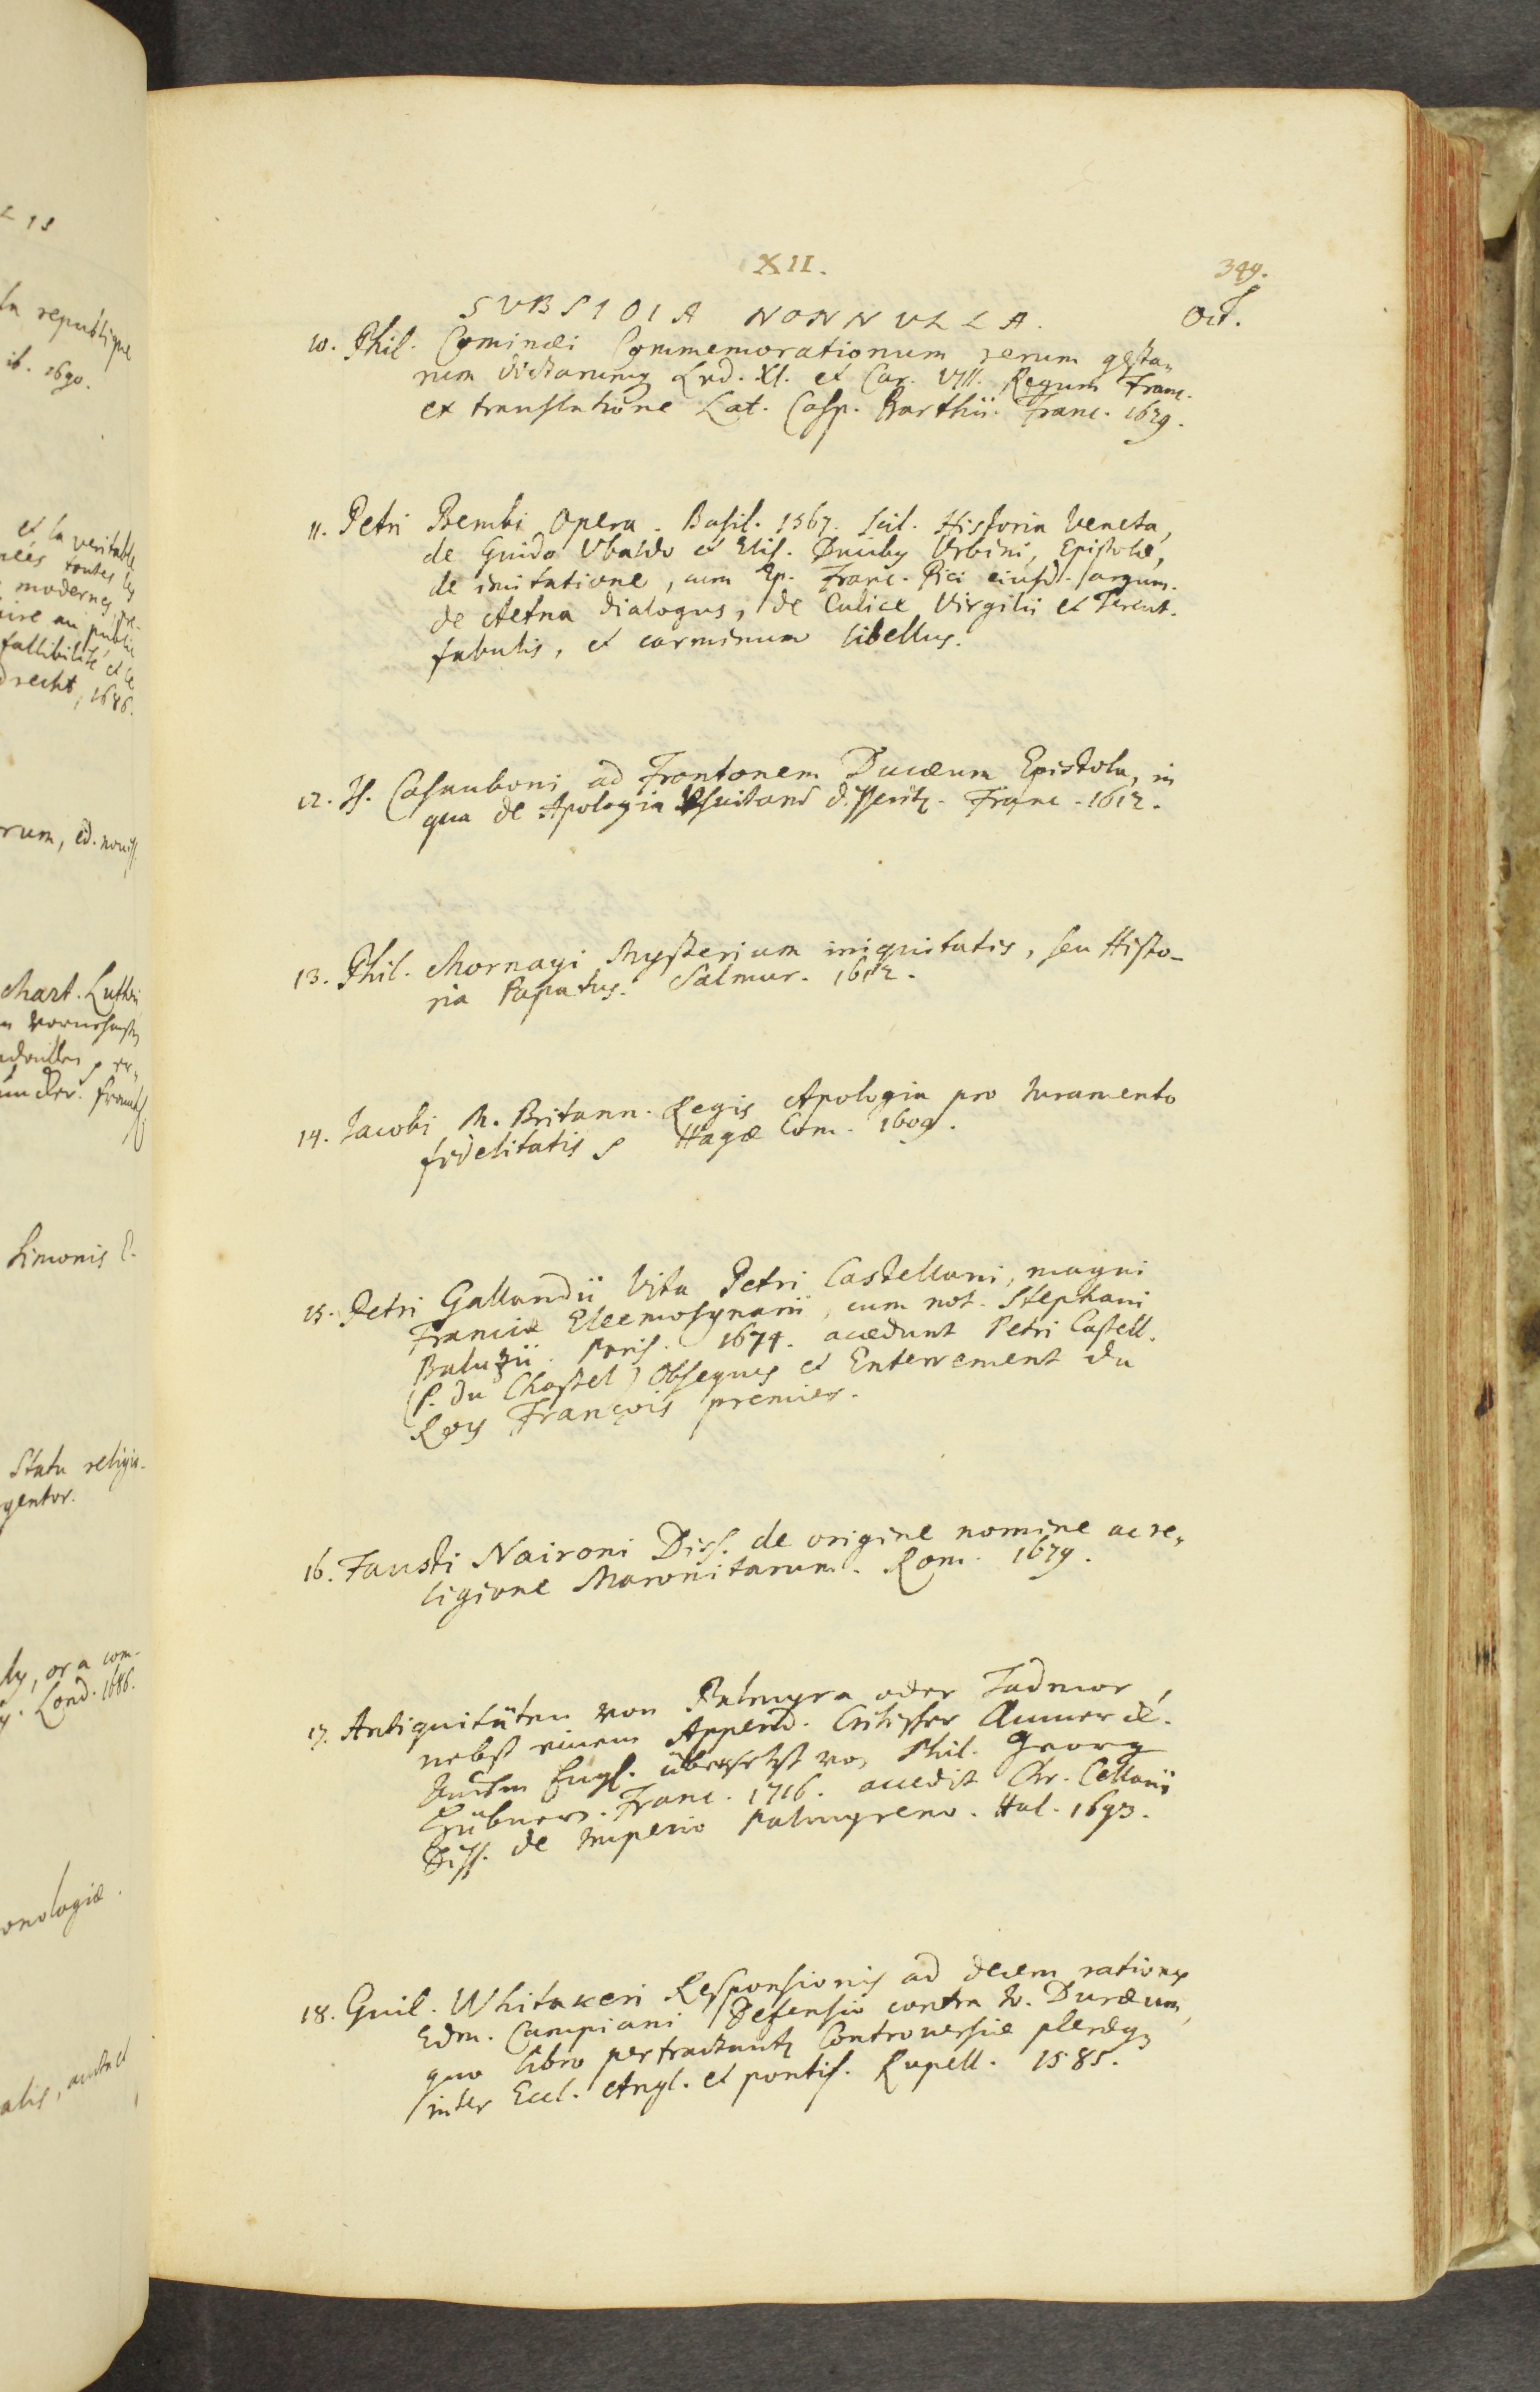 XII.
349.
SVBSIDIA NONNVLLA.
Oct.
10. Phil. Cominæi Commemorationum rerum gesta-
rum dictarumq Lud. XI. et Car. VIII. Regum Franc.
ex translatione Lat. Casp. Barthii. Franc. 1629.
11. Petri Bembi Opera. Basil. 1567. scil. Historia Veneta,
de Guido Vbaldo et Elis. Ducibg Vrbini, Epistolæ,
de imitatione, cum Ep. Franc. Pici eiusd. argum.
de Aetna dialogus, de Culice Virgilii et Terent.
fabulis, et carminum libellus.
12. Is. Casauboni ad Frontonem Ducæum Epistola, in
qua de Apologia Franc. 1612.
13. Phil. Mornayi Mysterium iniquitatis, seu Histo-
ria Papatus. Salmur. 1612.
14. Iacobi M. Britann. Regis Apologia pro Iuramento
fidelitatis Hagæ Com. 1609.
15. Petri Gallandii Vita Petri Castellani, magni
Franciæ Eleemosynarii, cum not. Stephani
Baluzii. Paris. 1674. accedunt Petri Castell.
(P. du Chastel) Obseques et Enterrement du
Roy François premier.
16. Fausti Naironi Diss. de origine nomine ac re-
ligione Maronitarum. Rom. 1679.
17. Antiquitäten von Palmyra oder Tadmor,
nebst einem Append. Critischer Anmerck.
Aus dem Engl. übersetzt von Phil. Georg
Hübner. Franc. 1716. accedit Chr. Cellarii
Diss. de Imperio Palmyreno. Hal. 1693.
18. Guil. Whitakeri Responsionis ad decem rationes
Edm. Campiani Defensio contra Io. Duræum,
quo libro pertractantr Controversiæ pleræq
inter Eccl. Angl. et pontif. Rupell. 1585.
la republique
ib. 1690.
et la veritable
toutes les
modernes, pre-
aire au public
fallibilité et le
drecht, 1686.
rum, ed. noviss.
Mart. Lutheri
Simonis
Statu religio-
gentor.
ly, or a com-
Lond. 1686.
onologiæ.